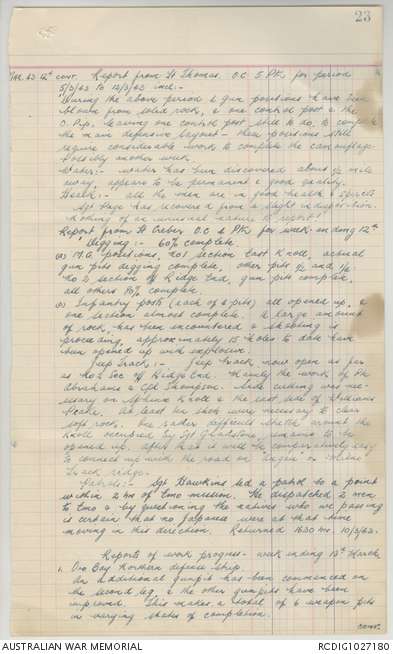 23
Mar. 43 12th cont. Report from Lt Thomas. O.C. 5 Ptn. for period
5/3/43 to 12/3/43 incl:-
During the above period 2 gun positions have been
blown from solid rock, & one control post & the
O.Pip. leaving one control post still to do, to complete
the main defensive layout - these positions still
require considerable work to complete the camouflage.
Possibly another week.
Water:- Water has been discovered about 1/2 mile
away, appears to be permanent & good quality.
Health:- All the men are in good health & spirits
Sgt Page has recovered from a slight indisposition.
Nothing of an unusual nature to report!
Report from Lt Creber O.C. 6 Ptn for week ending 12th
Digging:- 60% complete.
(a) M.G. positions, No1 section East Knoll, actual
gun pits digging complete, other pits 1/2 and 1/4
No 2 section of Ridge End, gun pits complete,
all others 75% complete.
(b) Infantry posts (each of 6 pits) all opened up, &
one section almost complete. A large amount
of rock, has been encountered & shooting is
proceeding, approximately 15 holes to date have
been opened up with explosives.
Jeep Track:- Jeep track now open as far
as No 2 Sec of Ridge End. Mainly the work by Pte
Abrahams & Cpl Thompson. Side cutting was nec-
essary on Sphinx Knoll & the east side of Williams
Peake. At least six shots were necessary to clear
soft rock. One rather difficult stretch around the
Knoll occupied by Sgt Gladstone, remains to be
opened up. After that it will be comparatively easy
to connect up with the road on
Track ridge.
Patrols:- Sgt Hawkins led a patrol to a point
within 2 hrs of Emo mission. He dispatched 2 men
to Emo & by questioning the natives who were passing
is certain that no Japanese were at that time
moving in this direction. Returned 1630 hrs. 10/3/43.
Reports of work progress - week ending 13th March
1. Oro Bay Northern defence strip.
An additional gunpit has been commenced on
the second leg, & the other gunpits have been
improved. This makes a total of 6 weapon pits
in varying states of completion.
cont.
AUSTRALIAN WAR MEMORIAL
RCDIG1027180